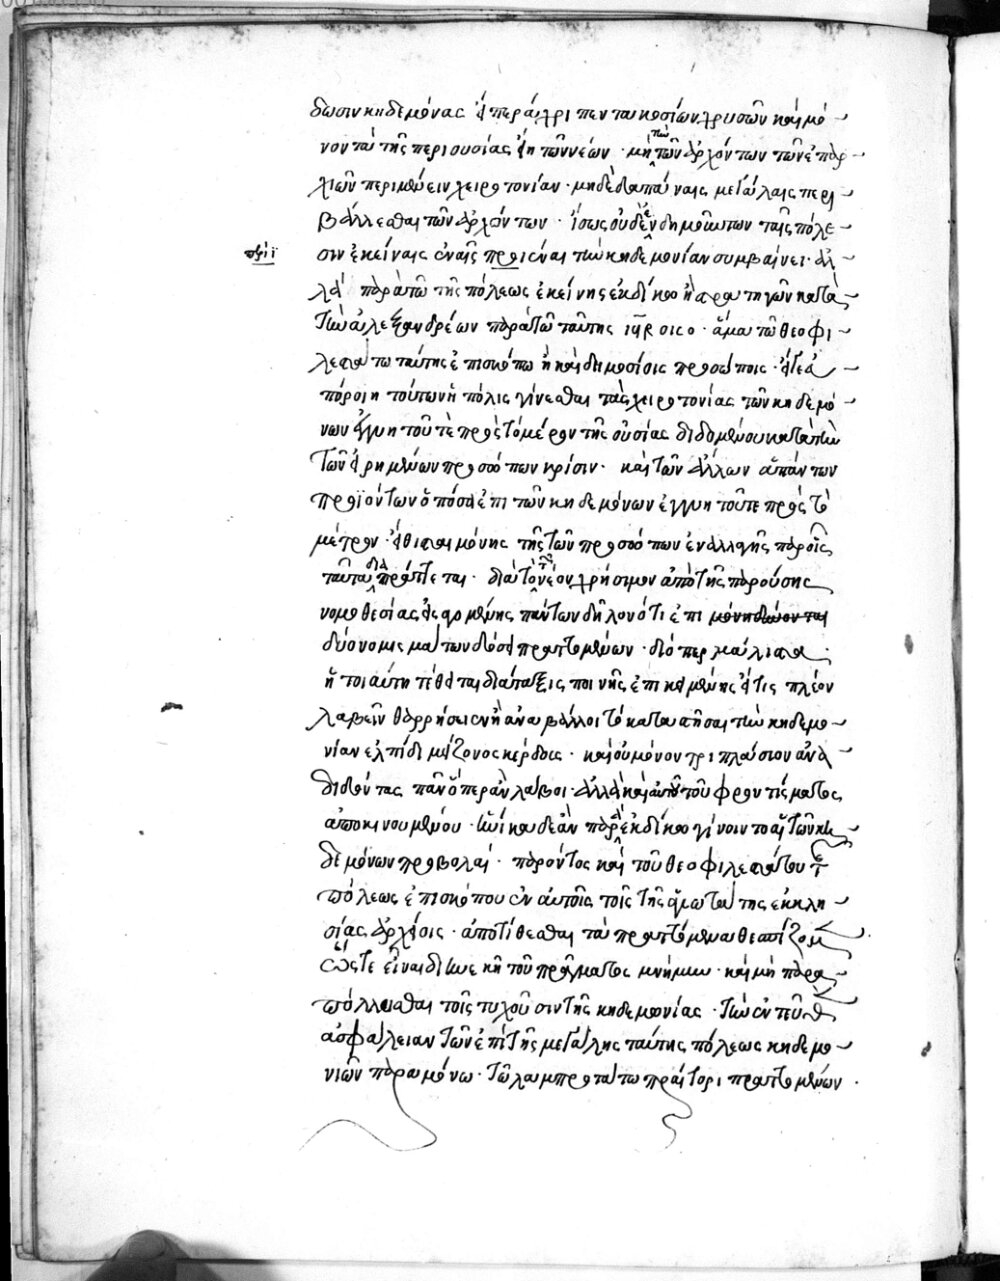 δώσιν κηδεμόνας εἰ περ ἄχρι πεντακοσίων χρυσῶν καὶ μό
νον τὰ τῆς περιουσίας εἴη τῶν νέων · μὴ τὴν τῶν ἀρχόντων τῶν ἐπαρ
χιῶν περιμένειν χειροτονίαν · μηδὲ δαπάναις μεγάλαις περι
βάλλεσθαι τῶν ἀρχόντων · ἴσως οὐδὲ ἐνδημούντων ταῖς πόλε
σιν ἐκείναις ἐν αἷς προϊέναι τὴν κηδεμονίαν συμβαίνει · ἀλ
λὰ παρὰ τῶ τῆς πόλεως ἐκείνης ἐκδίκω ἢ στρατηγῶν κατὰ
τὴν ἀλεξανδρέων παρὰ τῶ ταύτης · ἅμα τῶ θεοφι
λεστάτω ταύτης ἐπισκόπω ἢ καὶ δημοσίοις προσώποις · εἴγε
πόροιη τούτων ἡ πόλις γίνεσθαι τὰς χειροτονίας τῶν κηδεμό
νων ἐγγύη τοῦ τε πρὸς τὸ μέτρον τῆς οὐσίας διδομένου κατὰ τὴν
τῶν εἰρημένων προσώπων κρίσιν · καὶ τῶν ἄλλων ἁπάντων
προϊόντων ὁπόσα ἐπὶ τῶν κηδεμόνων ἐγγύη τοῦτε πρὸς τὸ
μέτρον · μόνης τῆς τῶν προσώπων ἐναλλαγῆς παρ' οἷς
ταῦτα διαπράττεται · διὰ τὸν νέον χρήσιμον ἀπὸ τῆς παρούσης
νομοθεσίας πάντων δηλονότι ἐπὶ
δύο νομισμάτων διόσα πραττομένων · διόπερ μάλιστα
ἡ τοιαύτη τέθειται διάταξις ποινῆς ἐπικειμένης εἴ τις πλέον
λαβεῖν θαρρήσειεν ἢ ἀναβάλλοι τὸ καταστῆσαι τὴν κηδεμο
νίαν ἐλπίδι μείζονος κέρδους · καὶ οὐ μόνον τριπλάσιον ἀνα
διδόντας πᾶν ὅπερ ἂν λάβοι · ἀλλὰ καὶ αὐτοῦ τοῦ φροντίσματος
ἀποκινουμένου · ἡνίκα δὲ ἂν παρὰ ἐκδίκω γίνοιντο αἱ τῶν κη
δεμόνων προβολαί · παρόντος καὶ τοῦ θεοφιλεστάτου τῆς
πόλεως ἐπισκόπου ἐν αὐτοῖς τοῖς τῆς ἁγιωτάτης ἐκκλη
σίας ἀρχείοις · ἀποτίθεσθαι τὰ πραττόμενα θεσπίζομεν
ὥστε εἶναι διηνεκῆ τοῦ πράγματος μνήμην · καὶ μὴ παρα
πόλλυσθαι τοῖς τυχοῦσιν τῆς κηδεμονίας · τὴν ἐντεῦθεν
ἀσφάλειαν τῶν ἐπὶ τῆς μεγάλης ταύτης πόλεως κηδεμο
νιῶν παραμένω · τῶ λαμπροτάτω πραίτορι πραττομένων ·